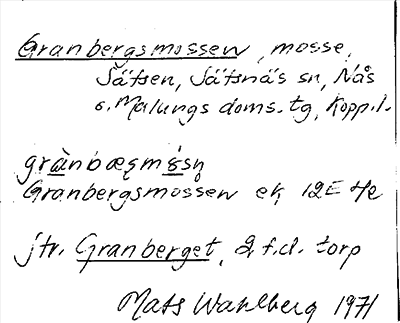 Granbergsmossen, mosse,
Sätsen, Sätsnäs sn, Nås
o. Malungs doms. tg, Kopp.l.
grànbæημśsņ
Granbergsmossen ek 12E 4e
jfr. Granberget, 2 f.d. torp
Mats Wahlberg 1971